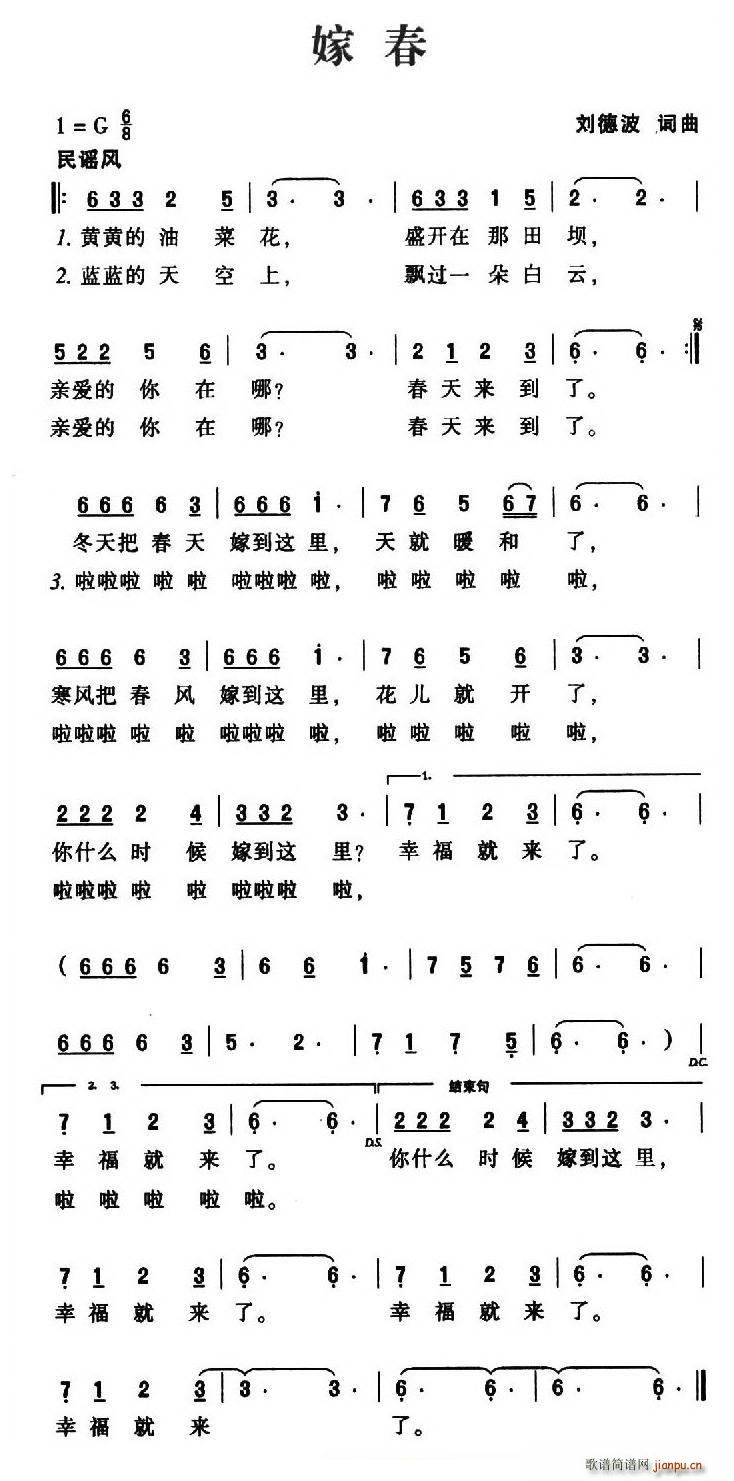 嫁 春
1 = G 6/8
刘德波 词曲
民谣风
‖: 6 3 3 2 5 | 3· 3· | 6 3 3 1 5 | 2· 2· |
1. 黄黄的 油 菜 花， 盛开在 那 田 坝，
2. 蓝蓝的 天 空 上， 飘过一 朵 白 云，
5 2 2 5 6 | 3· 3· | 2 1 2 3 | 6̣· 6̣· :‖
亲爱的 你 在 哪？ 春 天 来 到 了。
亲爱的 你 在 哪？ 春 天 来 到 了。
6 6 6 6 3 | 6 6 6 i· | 7 6 5 6 7 | 6· 6· |
冬天把 春 天 嫁到这 里， 天 就 暖 和 了，
3. 啦啦啦 啦 啦 啦啦啦 啦， 啦 啦 啦 啦 啦，
6 6 6 6 3 | 6 6 6 i· | 7 6 5 6 | 3· 3· |
寒风把 春 风 嫁到这 里， 花 儿 就 开 了，
啦啦啦 啦 啦 啦啦啦 啦， 啦 啦 啦 啦 啦，
1.
2 2 2 2 4 | 3 3 2 3· | 7̣ 1 2 3 | 6̣· 6̣· |
你什么 时 候 嫁到这 里？ 幸 福 就 来 了。
啦啦啦 啦 啦 啦啦啦 啦，
( 6 6 6 6 3 | 6 6 i· | 7 5 7 6 | 6· 6· |
6 6 6 6 3 | 5· 2· | 7̣ 1 7̣ 5̣ | 6̣· 6̣· ) |
D.C.
2. 3. 结束句
7̣ 1 2 3 | 6̣· 6̣· | 2 2 2 2 4 | 3 3 2 3· |
D.S.
幸 福 就 来 了。 你什么 时 候 嫁到这 里，
啦 啦 啦 啦 啦。
7̣ 1 2 3 | 6̣· 6̣· | 7̣ 1 2 3 | 6̣· 6̣· |
幸 福 就 来 了。 幸 福 就 来 了。
7̣ 1 2 3 | 3· 3· | 6̣· 6̣· | 6̣· 6̣· ‖
幸 福 就 来 了。
歌谱简谱网 jianpu.cn